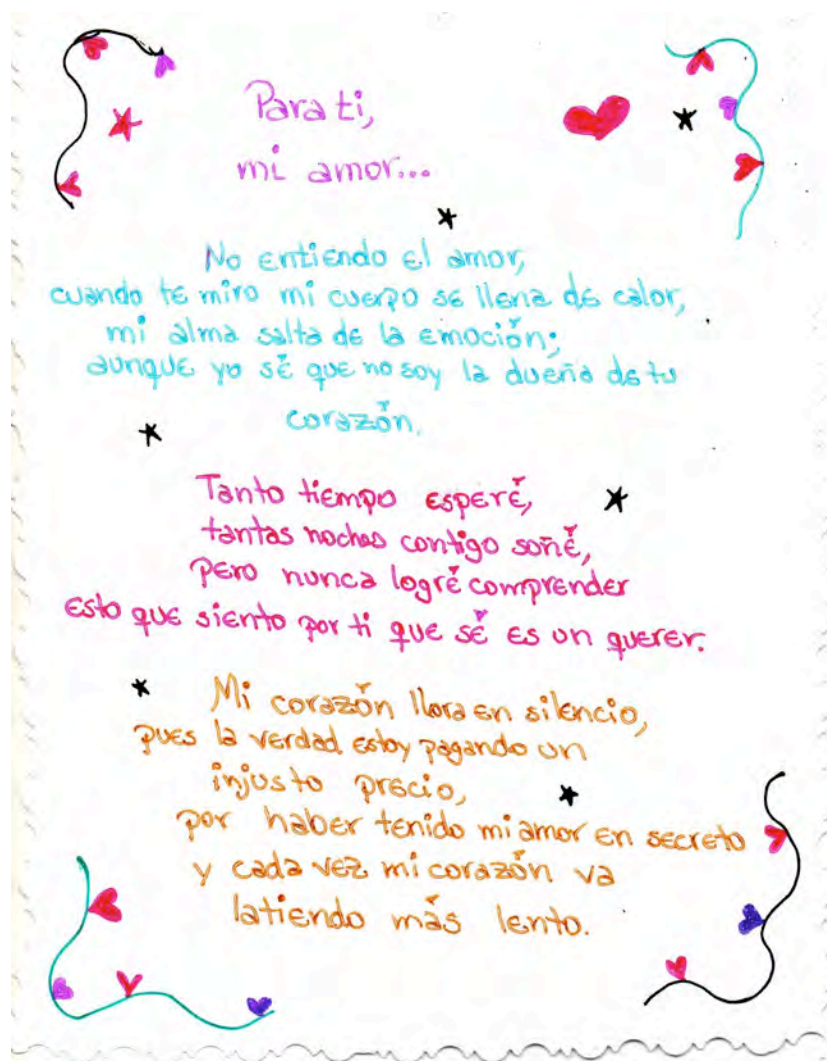 Para ti,
mi amor...
No entiendo el amor,
cuando te miro mi cuerpo se llena de calor,
mi alma salta de la emoción;
aunque yo sé que no soy la dueña de tu
corazón.
Tanto tiempo esperé,
tantas noches contigo soñé,
pero nunca logré comprender
esto que siento por ti que sé es un querer.
Mi corazón llora en silencio,
pues la verdad estoy pagando un
injusto precio,
por haber tenido mi amor en secreto
y cada vez mi corazón va
latiendo más lento.